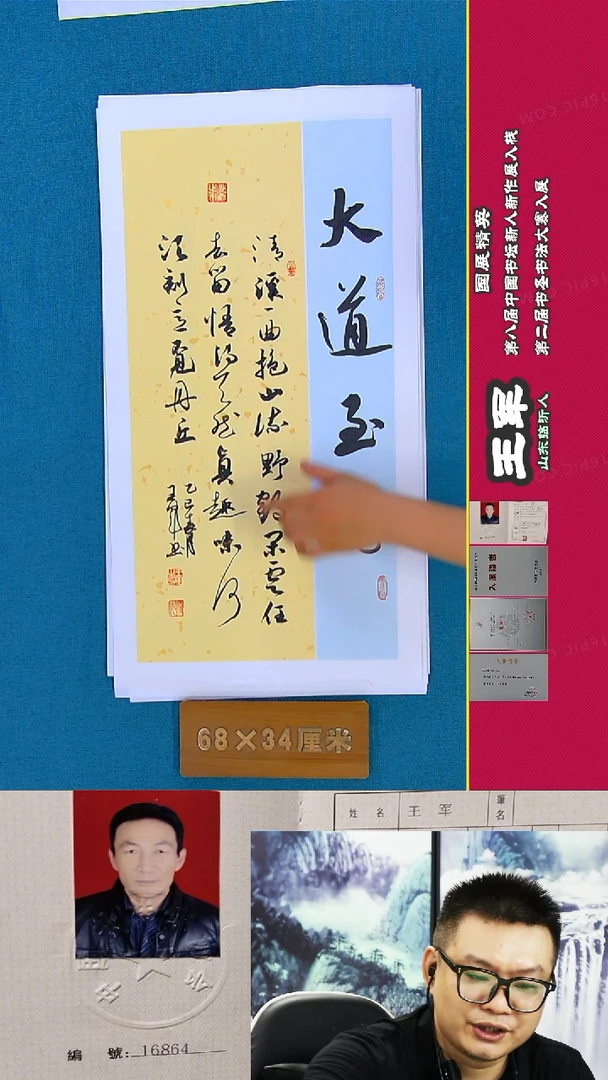 大道至
清溪一曲抱山流野鹤闲云任
去留悟得天然真趣味何
须刻意觅丹丘
王军书
68×34厘米
国展精英
第八届中国书坛新人新作展入展
第二届书圣书法大赛入展
王军
山东临沂人
姓 名 王 军 筆名
編 號: 16864